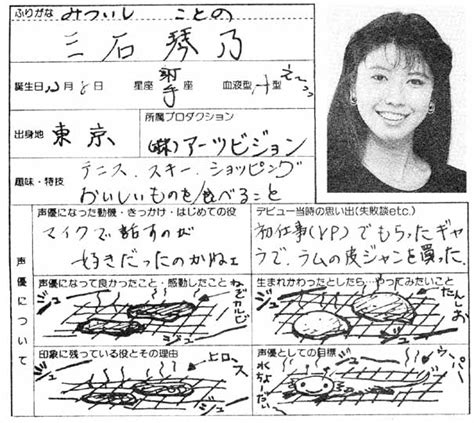 ふりがな みついし ことの
三石 琴乃
誕生日 12月8日 星座 射手 血液型 A型
出身地 東京
所属プロダクション
(株)アーツビジョン
趣味・特技
テニス、スキー、ショッピング
おいしいものを食べること
声優について
声優になった動機・きっかけ・はじめての役
マイクで話すのが
好きだったのかねェ
デビュー当時の思い出(失敗談etc.)
初仕事(VP)でもらったギャ
ラで、ラムの皮ジャンを買った。
声優になって良かったこと・感動したこと
ジュー
ねぎカルビ
ジュ
生まれかわったとしたら…やってみたいこと
ジュー
たんしお
印象に残っている役とその理由
ジュ
ヒロース
声優としての目標
ジュー